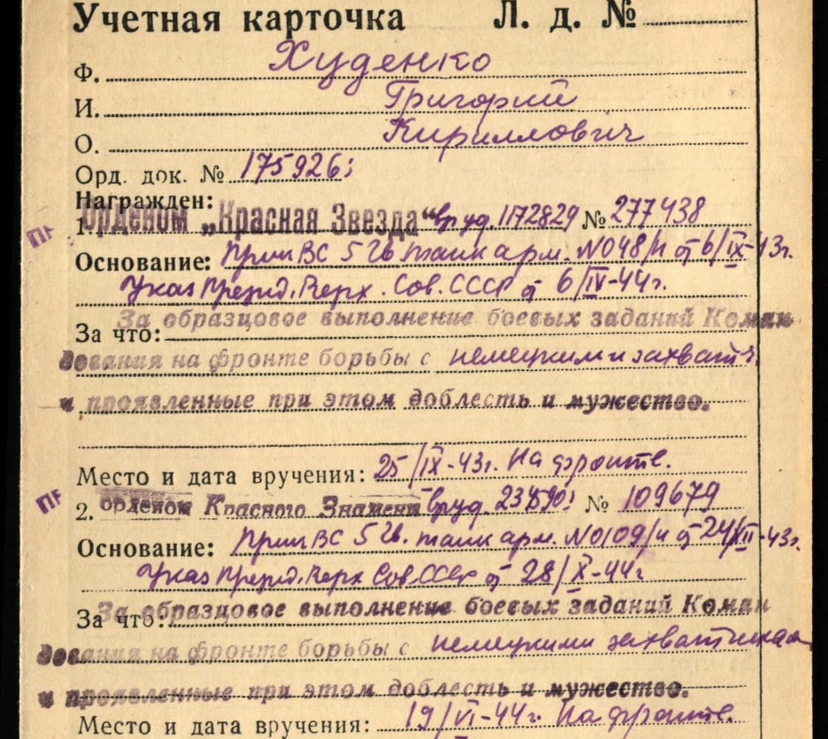 Учетная карточка Л. д. №
Ф. Худенко
И. Григорий
О. Кириллович
Орд. док. № 175926;
Награжден:
1. Орденом „Красная Звезда“ вруд. 1172829 № 277438
Основание: Прик ВС 5 Гв. танк арм. N048/н от 6/IX-43г.
Указ През. Верх. Сов. СССР от 6/IV-44г.
За что: За образцовое выполнение боевых заданий Коман
дования на фронте борьбы с немецкими захватч.
и проявленные при этом доблесть и мужество.
Место и дата вручения: 25/IX-43г. На фронте.
2. орденом Красного Знамени вруд. № 109679
Основание: Прик ВС 5 Гв. танк арм. N0109/н от 24/XII-43г.
Указ През. Верх Сов. СССР от 28/X-44г
За что: За образцовое выполнение боевых заданий Коман
дования на фронте борьбы с немецкими захватчиками
и проявленные при этом доблесть и мужество.
Место и дата вручения: 19/VI-44г. На фронте.